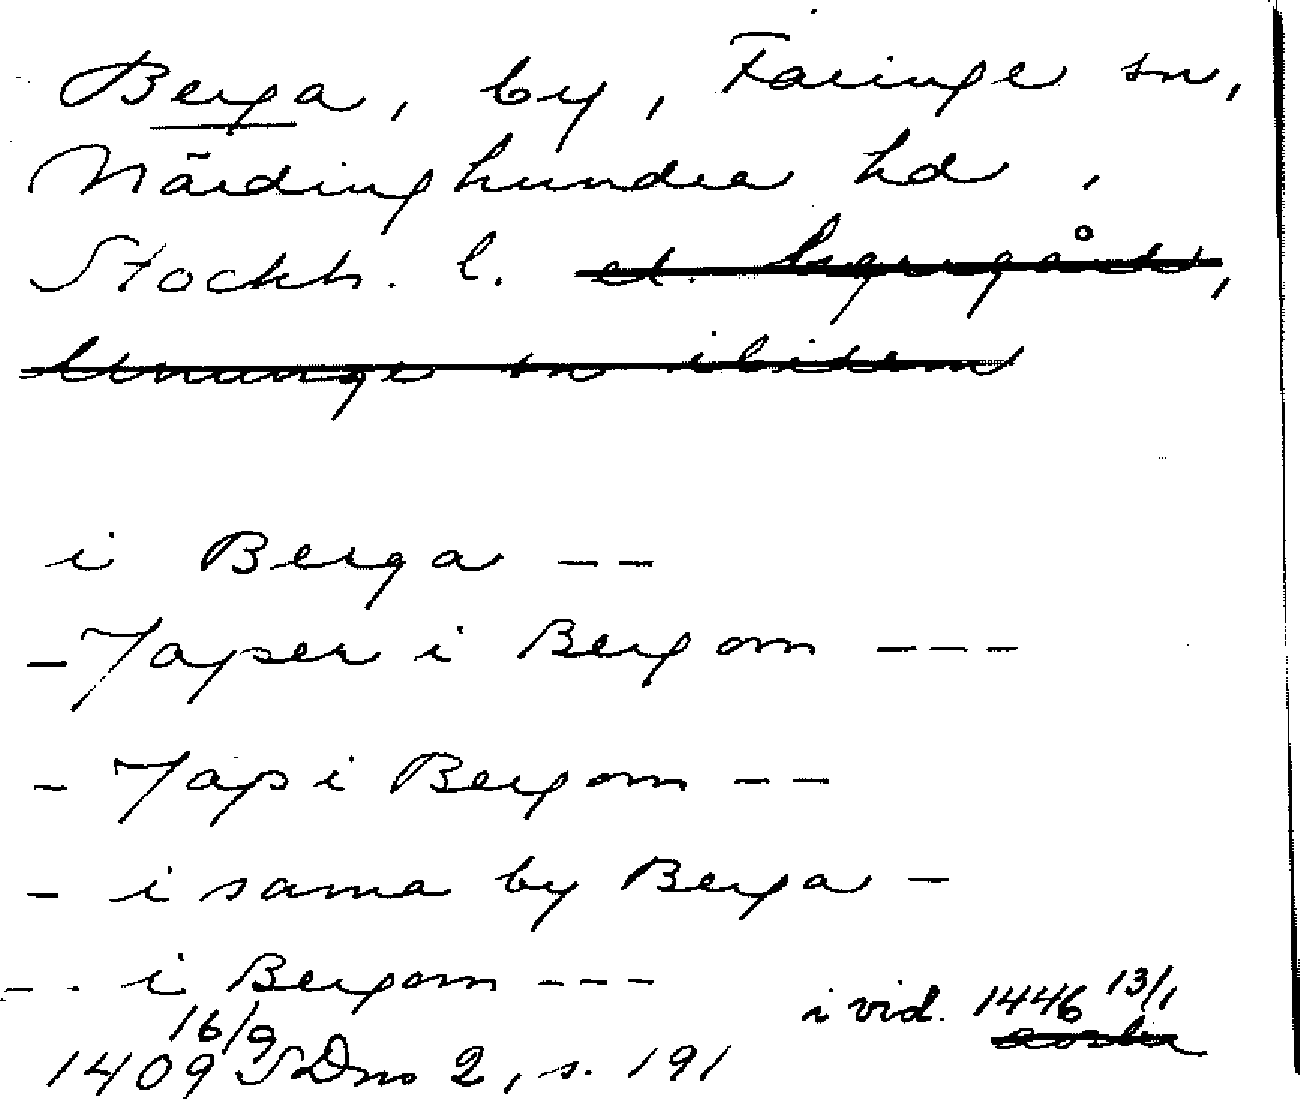 Berga, by, Faringe sn,
Närdinghundra hd,
Stockh. l. el. bygregård,
Ununge sn ibidem
i Berga --
- Japer i Bergom ---
- Jap i Bergom --
- i sama by Berga -
-- i Bergom ---
i vid. 1446 13/1
16/9
1409 SDns 2, s. 191